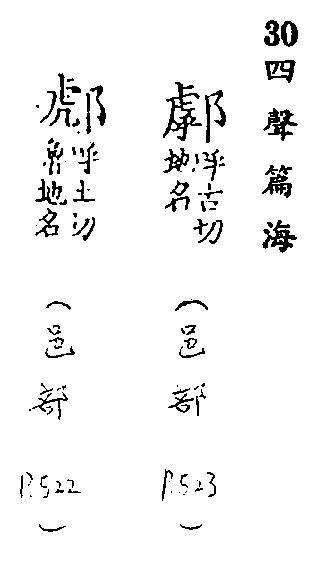 30四聲篇海
呼古切
地名
（邑部 P.523）
呼土切
魯地名
（邑部 P.522）